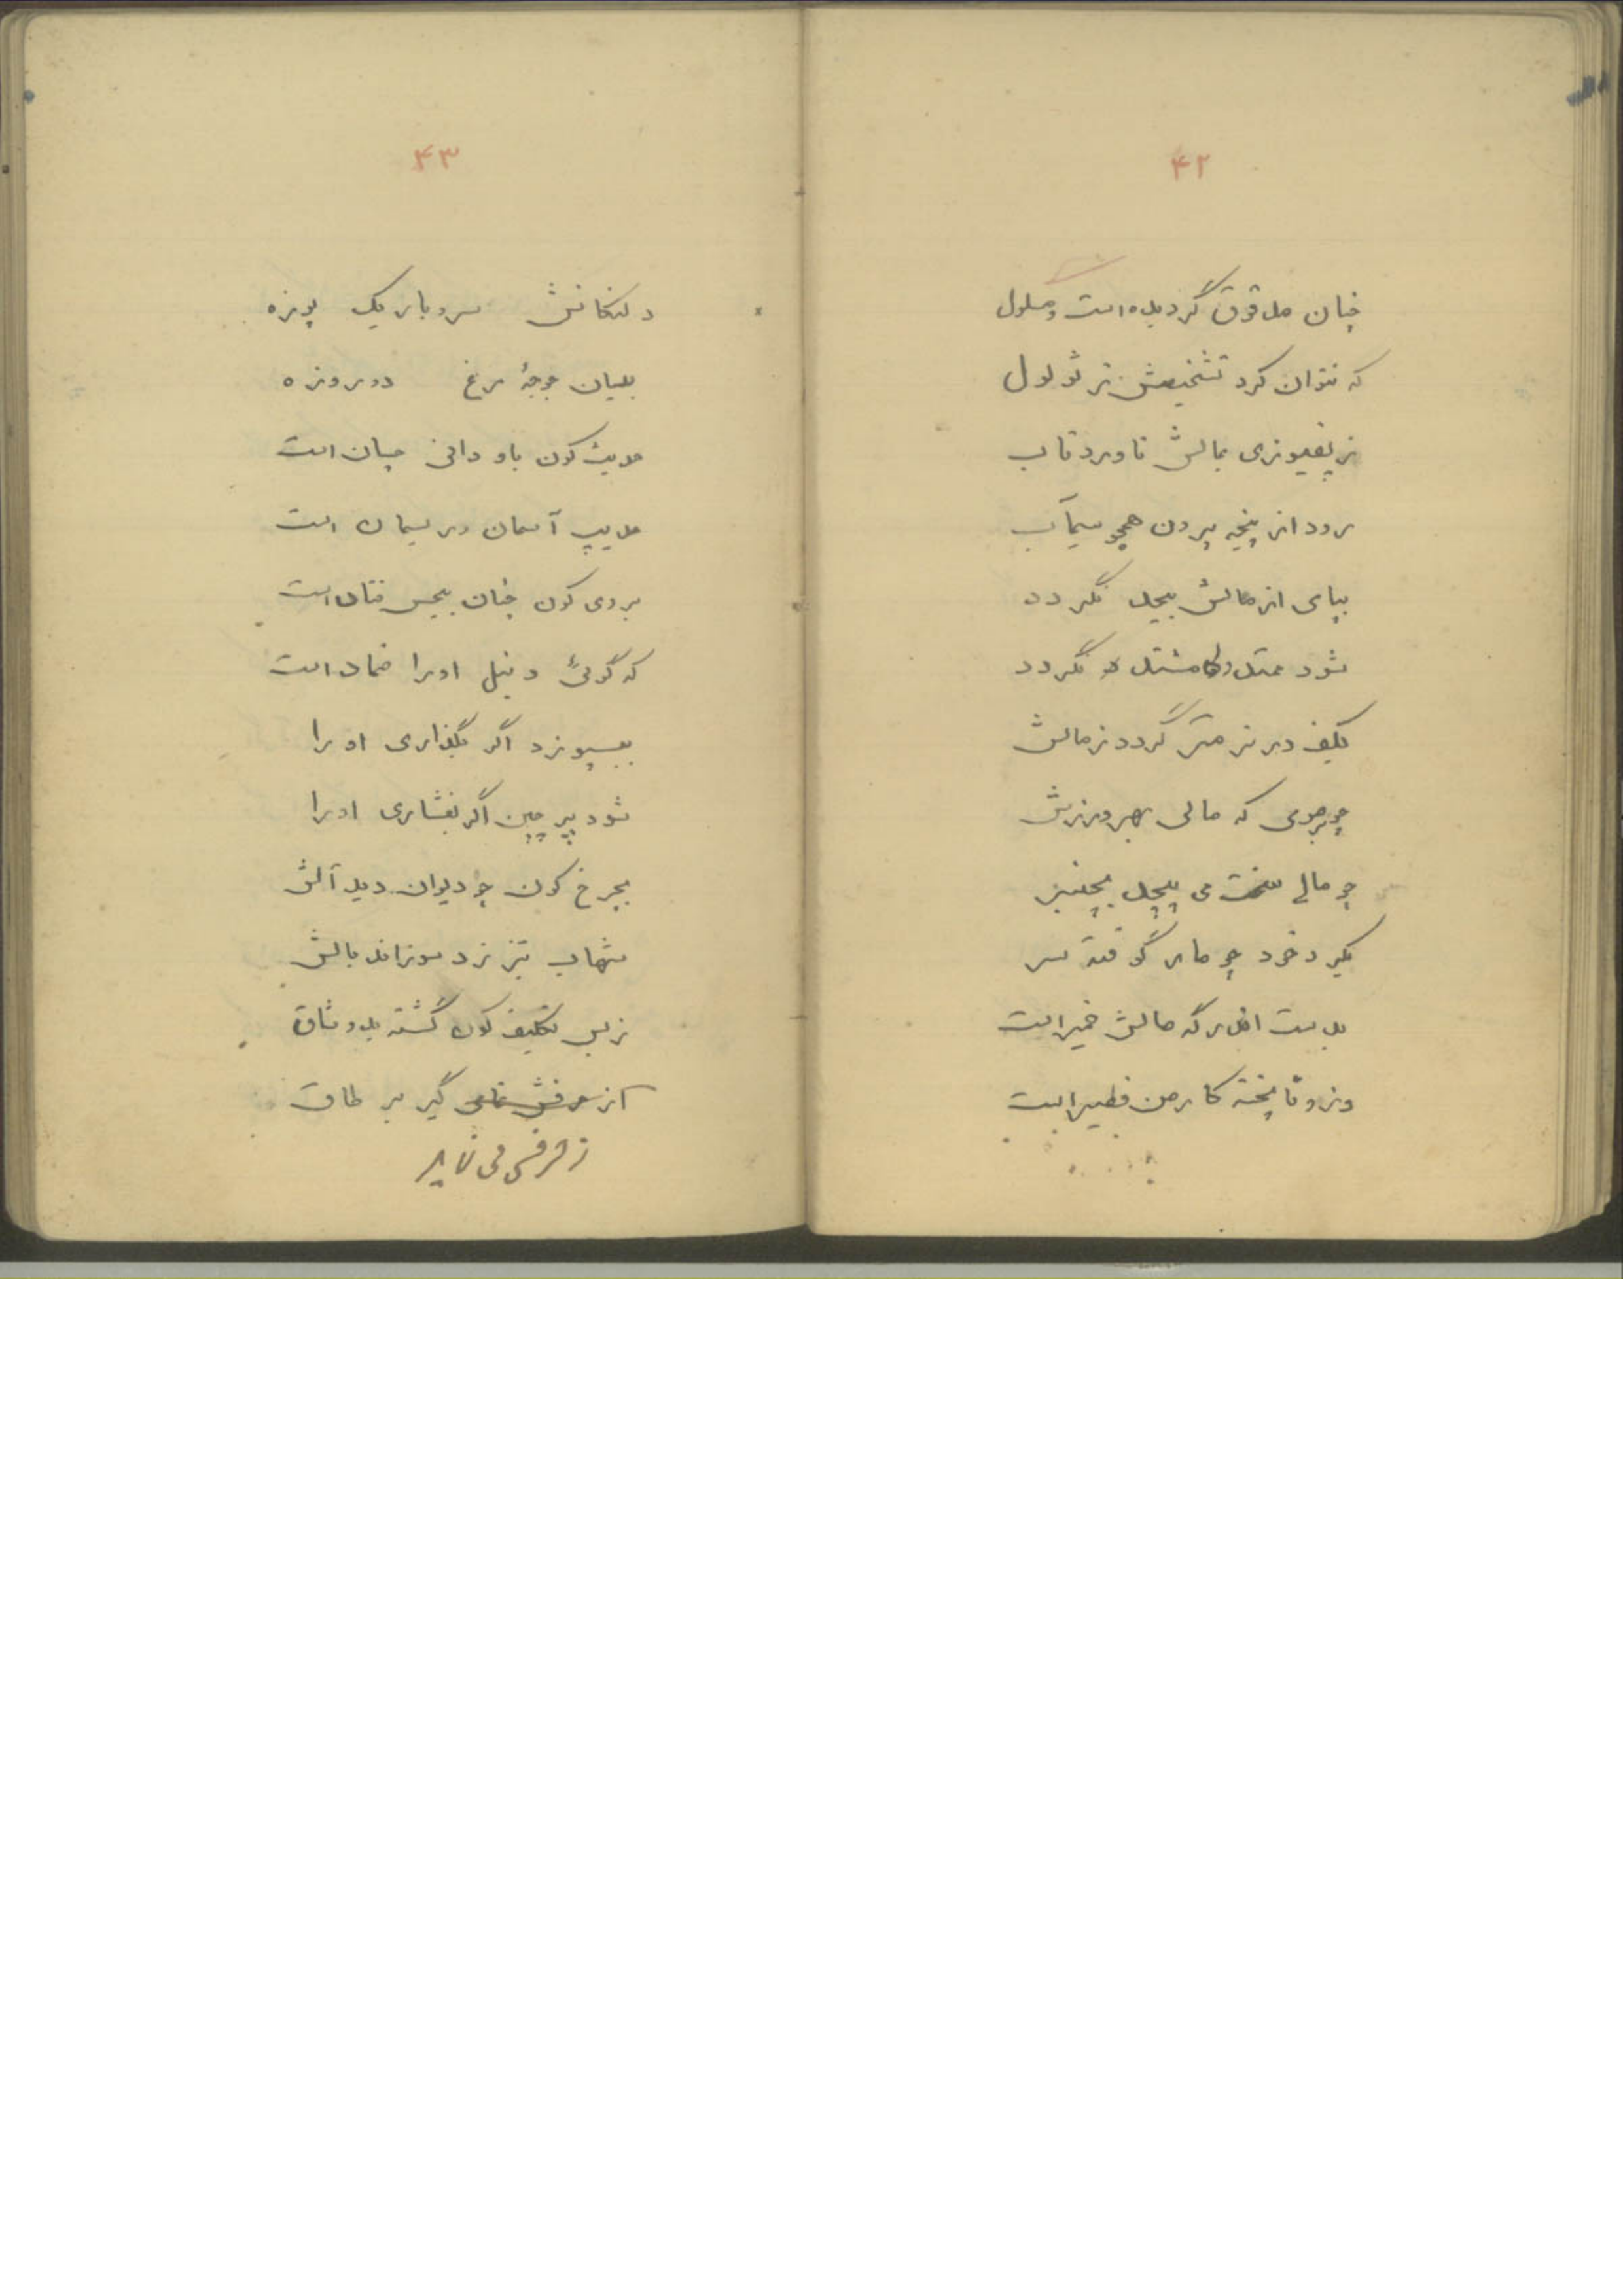 ۴۲
چنان مدقوق گردیده است و مسلول
که نتوان کرد تشخیصش ز لولول
ز پفیوزی بمالش ناورد تاب
رود از پنجه بیرون همچو سیماب
بپای از مالش بیحد نگردد
شود ممتد ولی مشتد نگردد
بکف در نرمتر گردد ز مالش
چو موی که مالی بهر ورزش
چو مالی سخت می پیچد بچنبر
بگیرد خود چو مار کوفته سر
بدست اندر گه مالش خمیر است
وز او نا پخته کار من فطیر است
۴۳
سر و باریک پوزه
بسان جوجهٔ مرغ دو روزه
حدیث کون باو دانی چسان است
حدیث آسمان و ریسمان است
بروی کون چنان بیحس فتاد است
که گوئی دنبل او را ضماد است
بسپوزد اگر بگذاری او را
شود پر چین اگر بفشاری او را
بچرخ کون چو دیوان دید آلش
شهاب تیز زد سوزاند بالش
ز بس تکلیف کون گشته بدو شاق
از گیر بر طاق